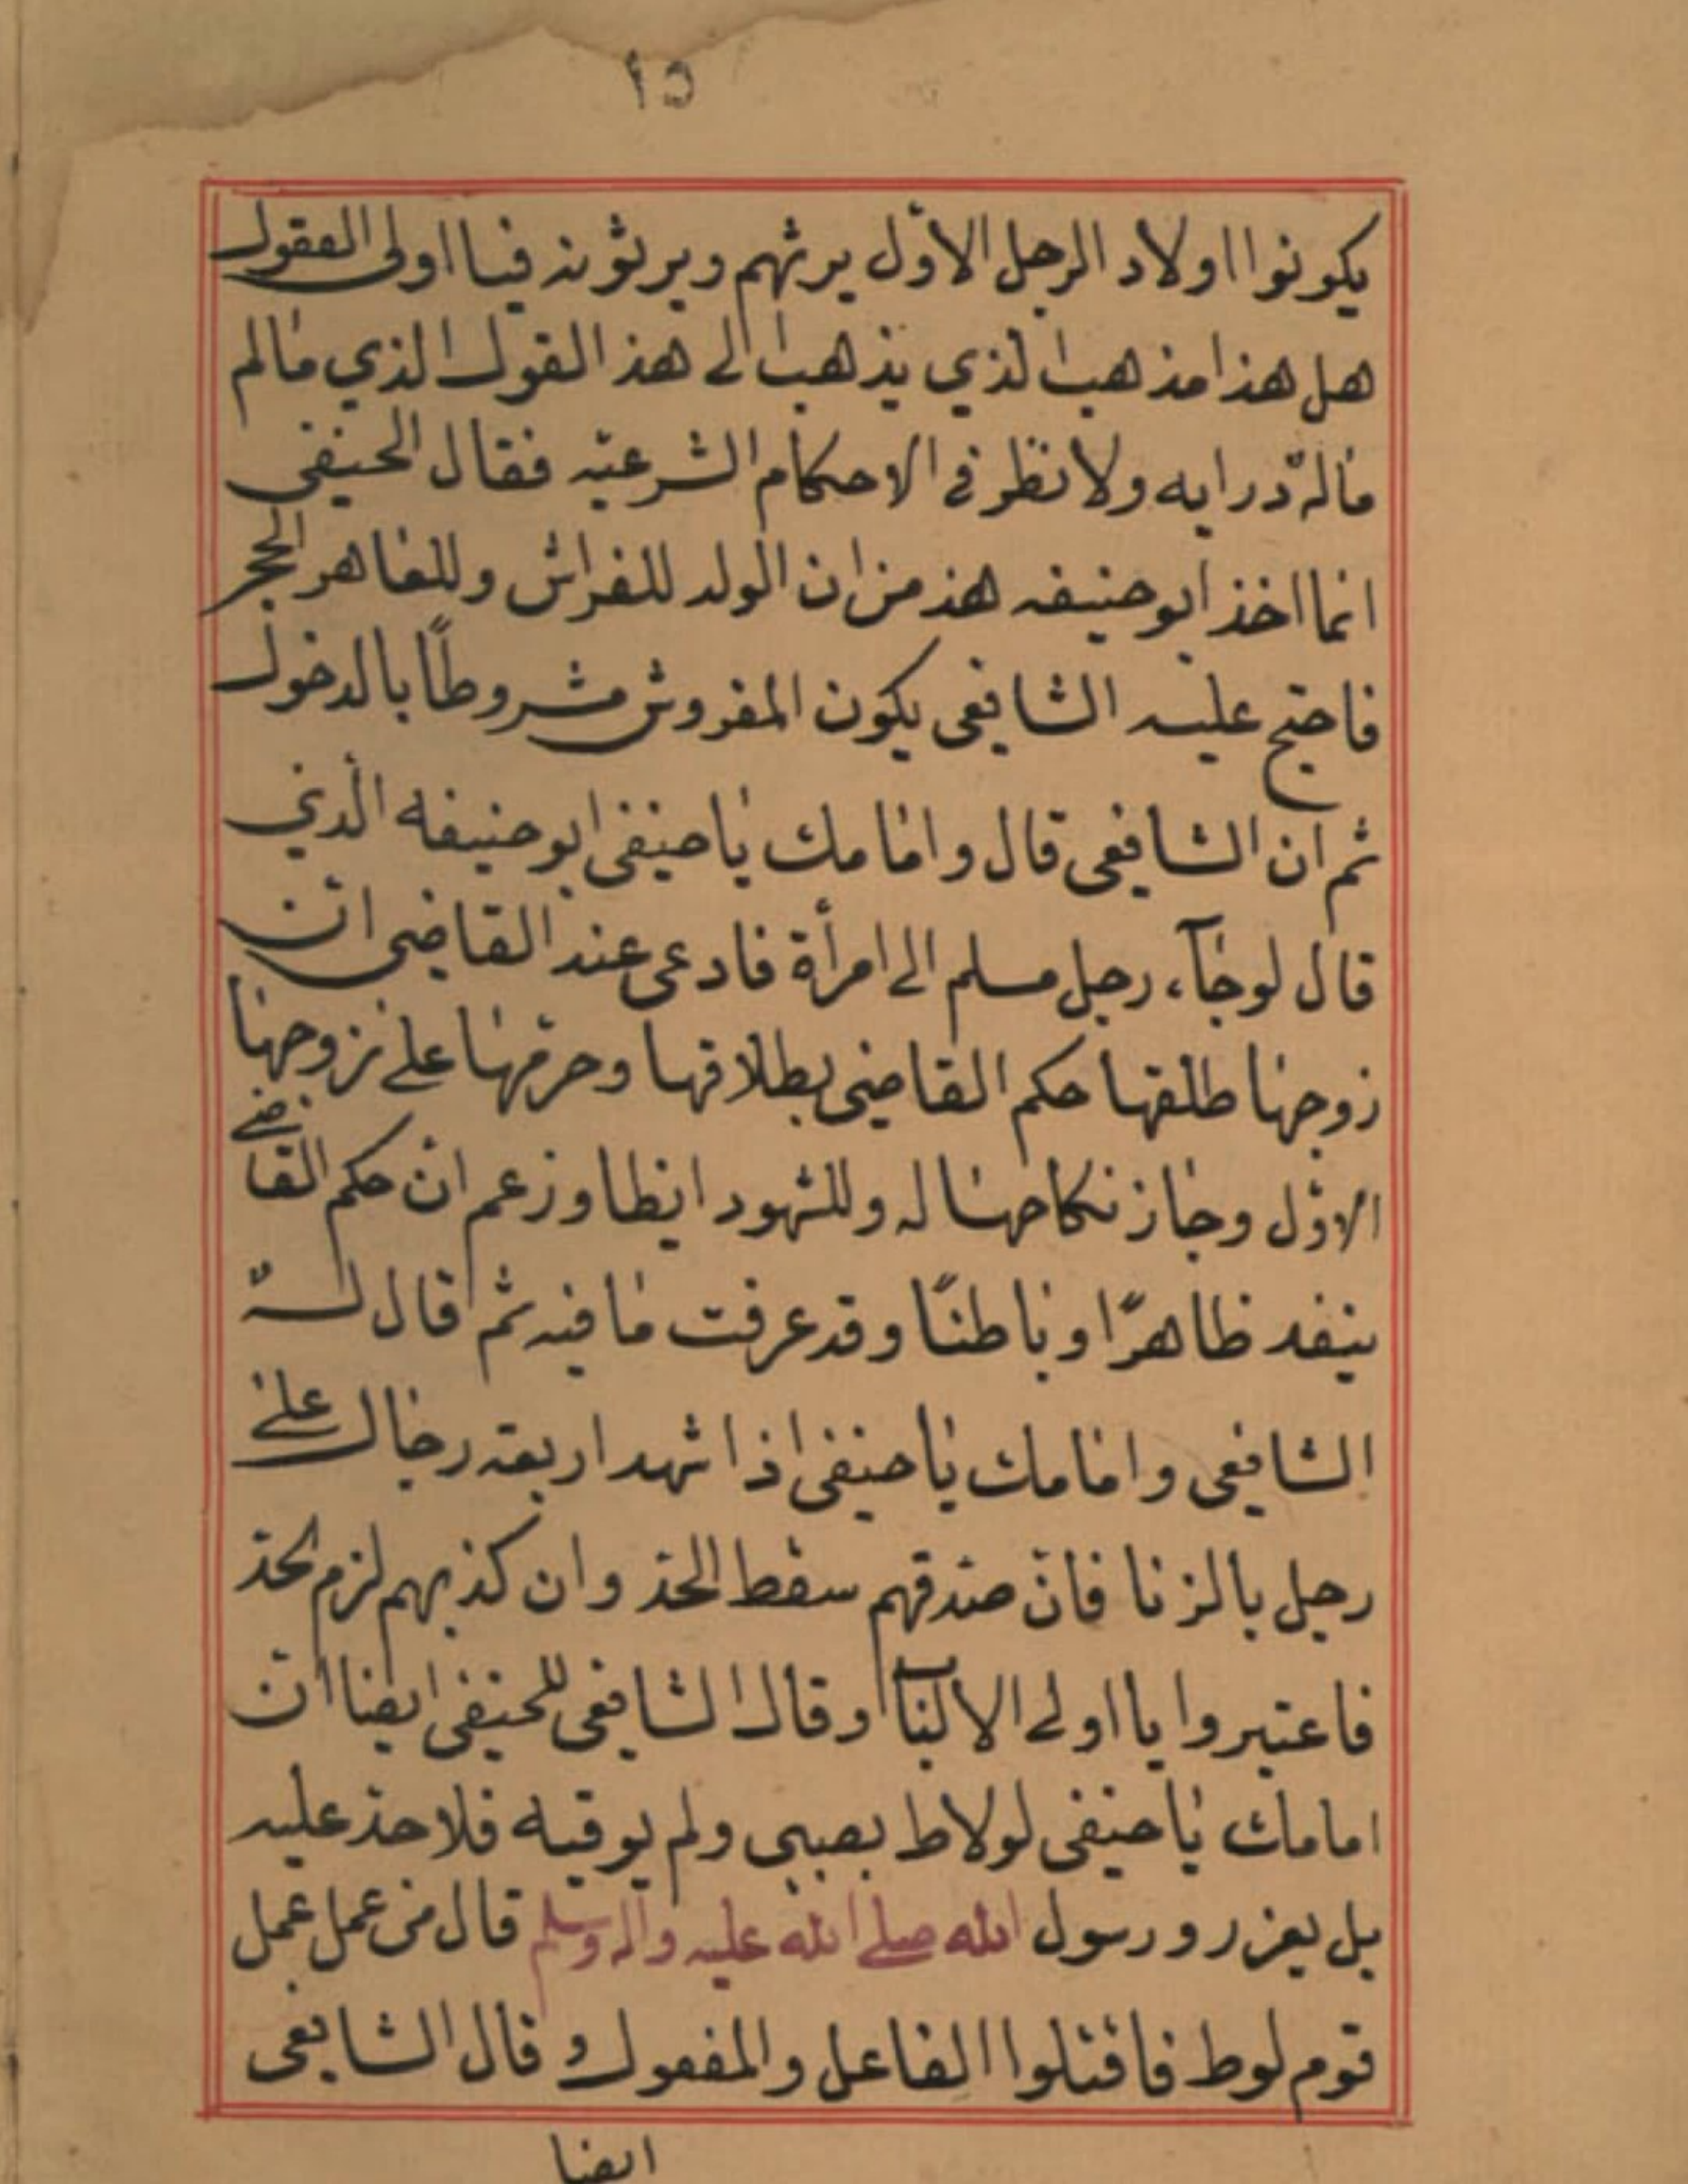 ١٥
يكونوا اولاد الرجل الاوّل يرثهم ويرثونه فيا اولى العقول
هل هذا مذهب الذي يذهب الى هذ القول الذي ما لم
ماله درايه ولا نظر فى الاحكام الشرعيّه فقال الحنيفى
انما اخذ ابو حنيفه هذ من ان الولد للفراش وللعاهر الحجر
فاحتج عليه الشافعى يكون المفروش مشروطاً بالدخول
ثم ان الشافعى قال وامامك يا حنيفى ابو حنيفه الّذي
قال لو جآء رجل مسلم الى امرأة فادعى عند القاضى انّ
زوجها طلقها حكم القاضى بطلاقها وحرّمها على زوجها
الاوّل وجاز نكاحها له وللشهود ايظا وزعم انّ حكم القاضى
ينفد ظاهرًا وباطنًا وقد عرفت ما فيه ثم قال لهُ
الشافعى وامامك يا حنيفى اذا شهد اربعة رجال على
رجل بالزنا فانّ صدّقهم سقط الحدّ وان كذبهم لزم لحدّ
فاعتبروا يا اولى الالباب وقال الشافعى للحنيفى ايضا انّ
امامك يا حنيفى لو لاط بصبى ولم يوقبه فلا حدّ عليه
بل يعزر ورسول الله صلى الله عليه واله وسلم قال من عمل عمل
قوم لوط فاقتلوا الفاعل والمفعول و قال الشافعى
ايضا